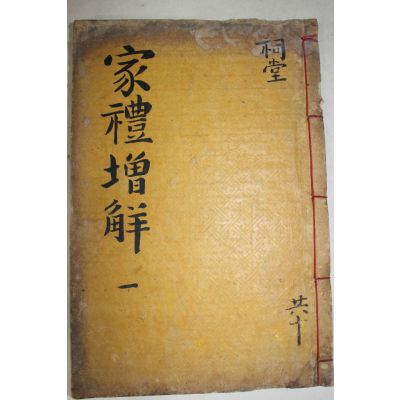 祠堂
家禮增解 一
共十